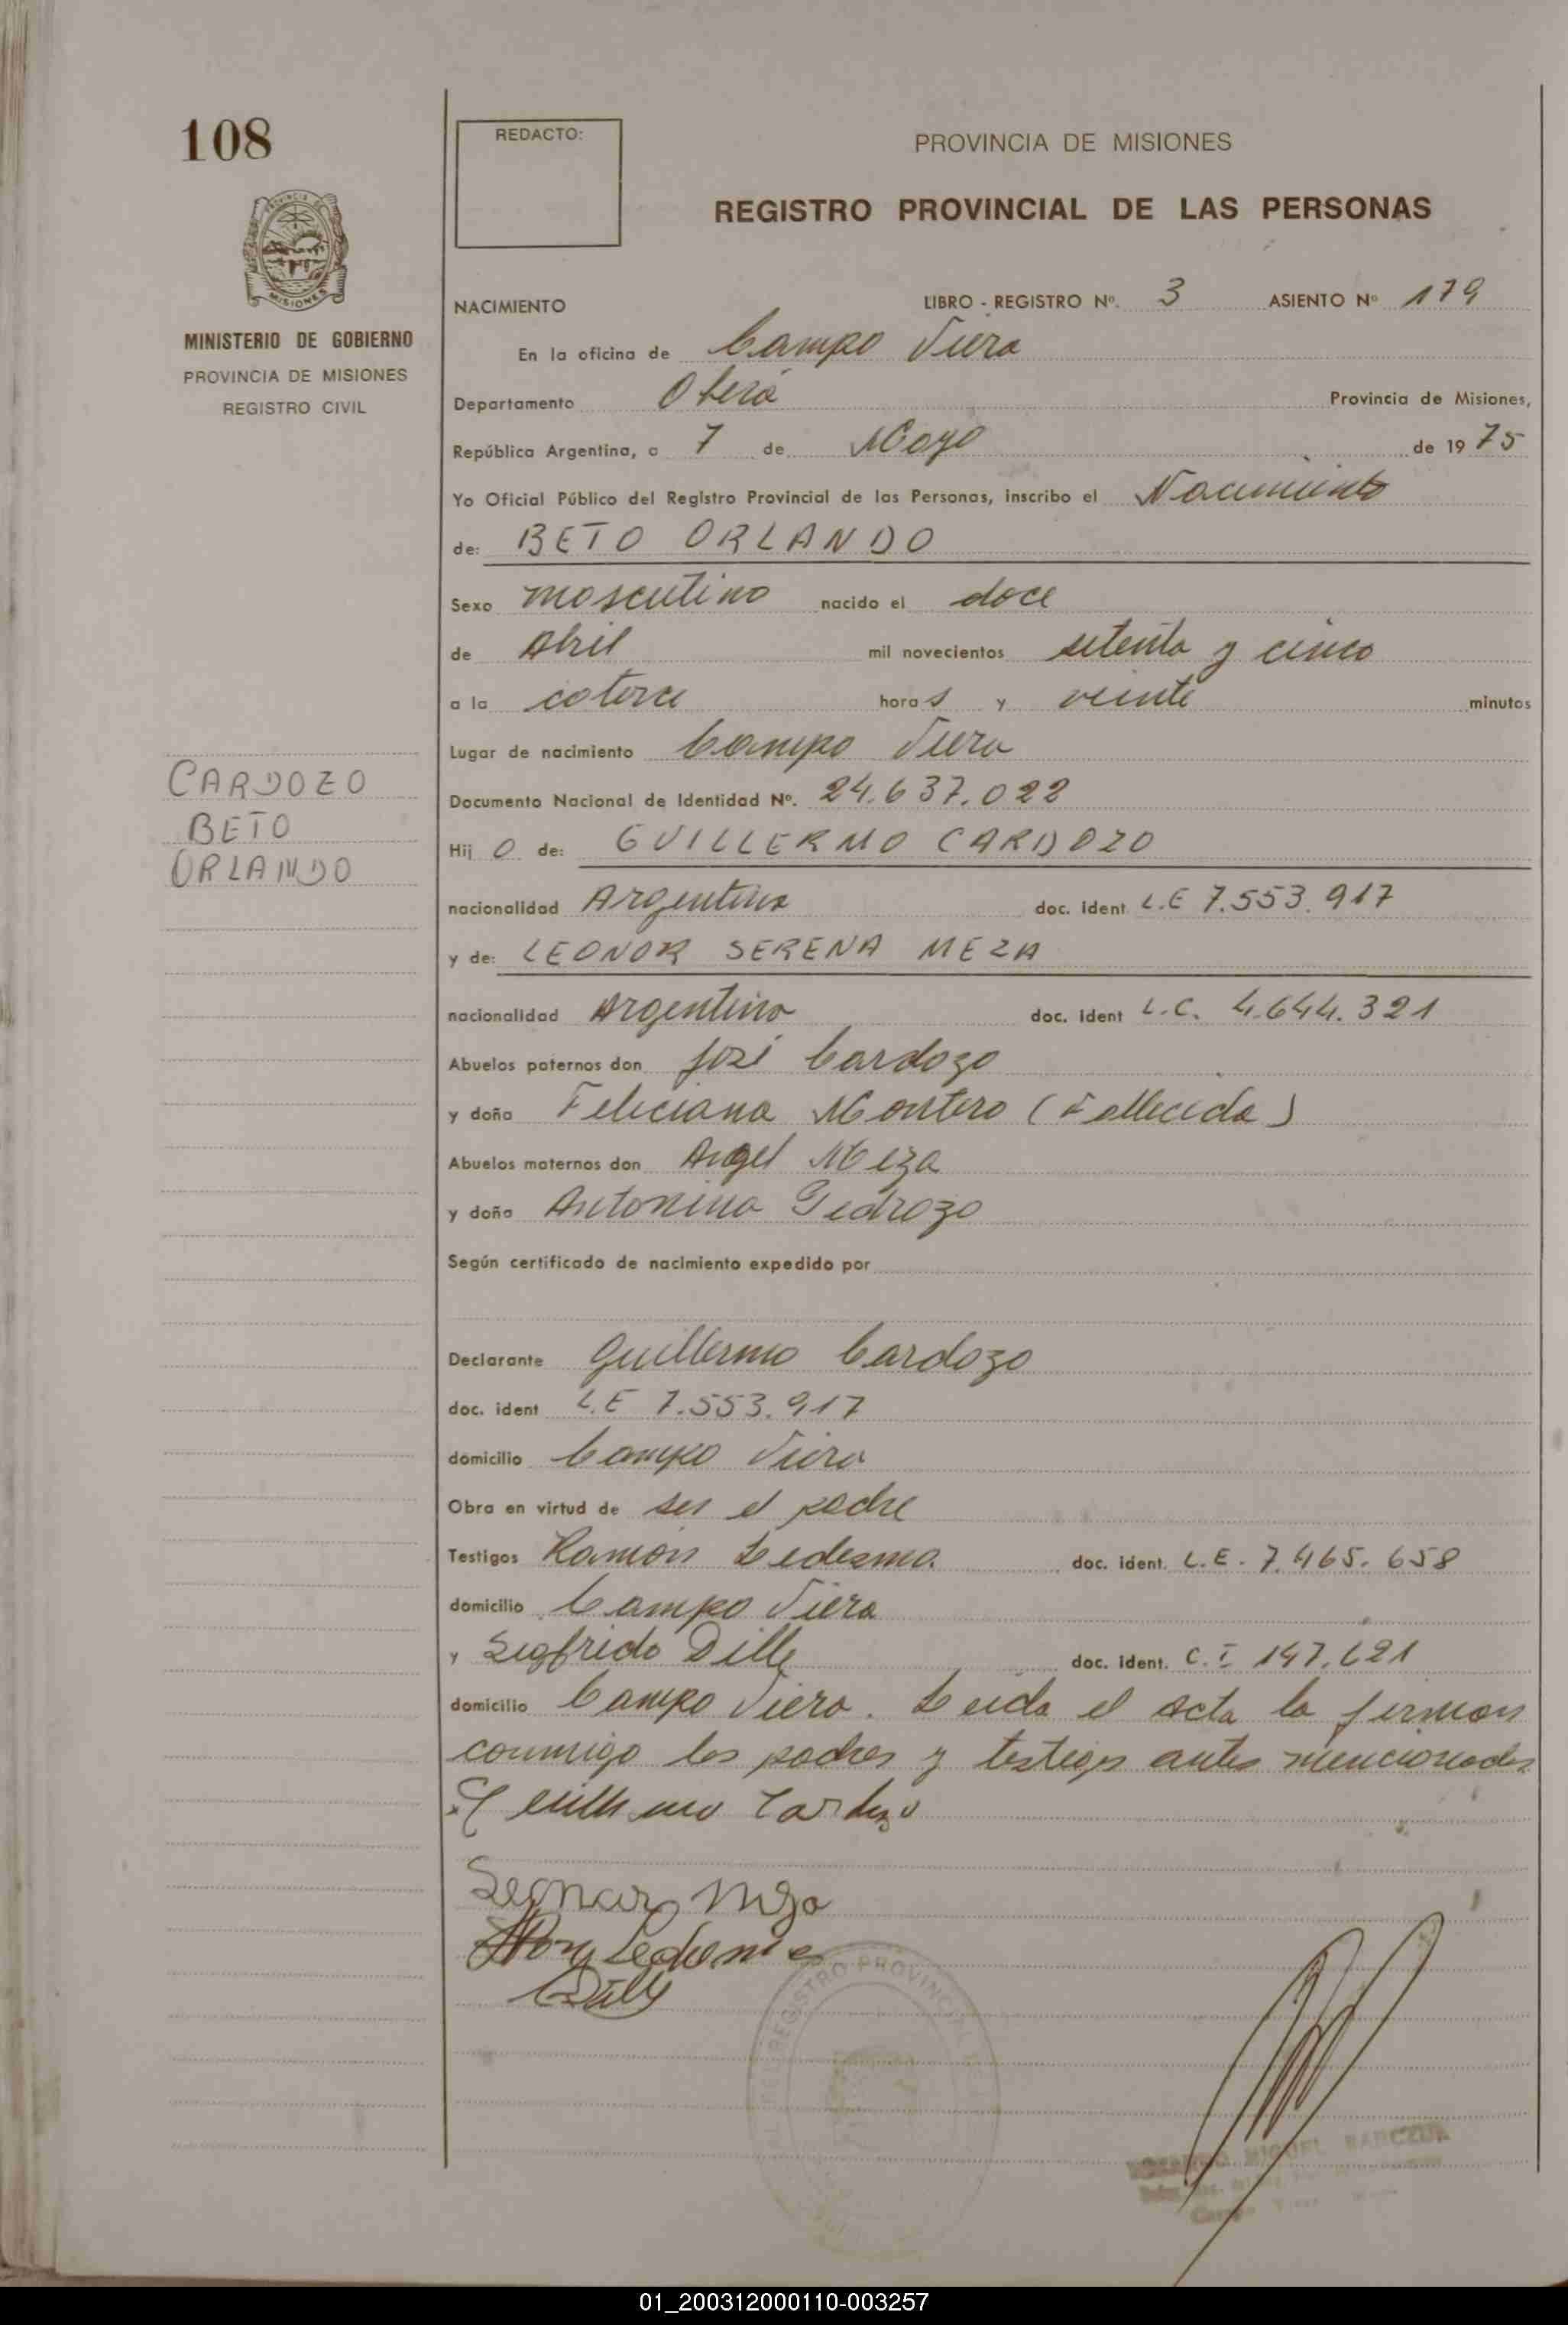 108
REDACTO:
PROVINCIA DE MISIONES
REGISTRO PROVINCIAL DE LAS PERSONAS
MISIONES
MINISTERIO DE GOBIERNO
PROVINCIA DE MISIONES
REGISTRO CIVIL
NACIMIENTO LIBRO - REGISTRO Nº. 3 ASIENTO Nº 179
En la oficina de Campo Viera
Departamento Oberá Provincia de Misiones,
República Argentina, a 7 de Mayo de 1975
Yo Oficial Público del Registro Provincial de las Personas, inscribo el Nacimiento
de: BETO ORLANDO
Sexo masculino nacido el doce
de Abril mil novecientos setenta y cinco
a la catorce horas y veinte minutos
Lugar de nacimiento Campo Viera
CARDOZO
BETO
ORLANDO
Documento Nacional de Identidad Nº. 24.637.022
Hij o de: GUILLERMO CARDOZO
nacionalidad Argentina doc. ident L.E 7.553.917
y de: LEONOR SERENA MEZA
nacionalidad Argentina doc. ident L.C. 4.644.321
Abuelos paternos don José Cardozo
y doña Feliciana Montero (Fallecida)
Abuelos maternos don Angel Meza
y doña Antonina Pedrozo
Según certificado de nacimiento expedido por
Declarante Guillermo Cardozo
doc. ident L.E 7.553.917
domicilio Campo Viera
Obra en virtud de ser el padre
Testigos Ramón Ledesma doc. ident. L.E. 7.465.658
domicilio Campo Viera
y Sigfrido Dille doc. ident. C.I 147.621
domicilio Campo Viera. Leida el acta la firman
conmigo los padres y testigos antes mencionados
Guillermo Cardozo
Leonor Meza
Ledesma
Dille
REGISTRO PROVINCIAL
MIGUEL
01_200312000110-003257